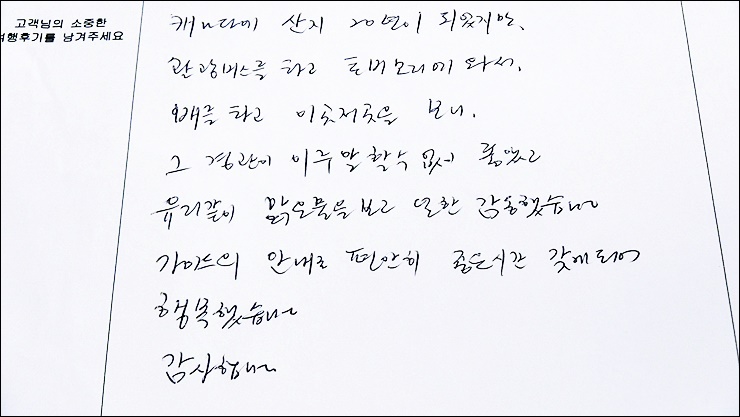 고객님의 소중한
여행후기를 남겨주세요
캐나다에 산지 20년이 되었지만,
관광버스를 타고 토버모리에 와서,
배를 타고 이곳저곳을 보니,
그 경관이 이루 말할수 없이 좋았고
유리같이 맑은물을보고 또한 감동했습니다
가이드의 안내로 편안히 좋은시간 갖게되어
행복했습니다
감사합니다